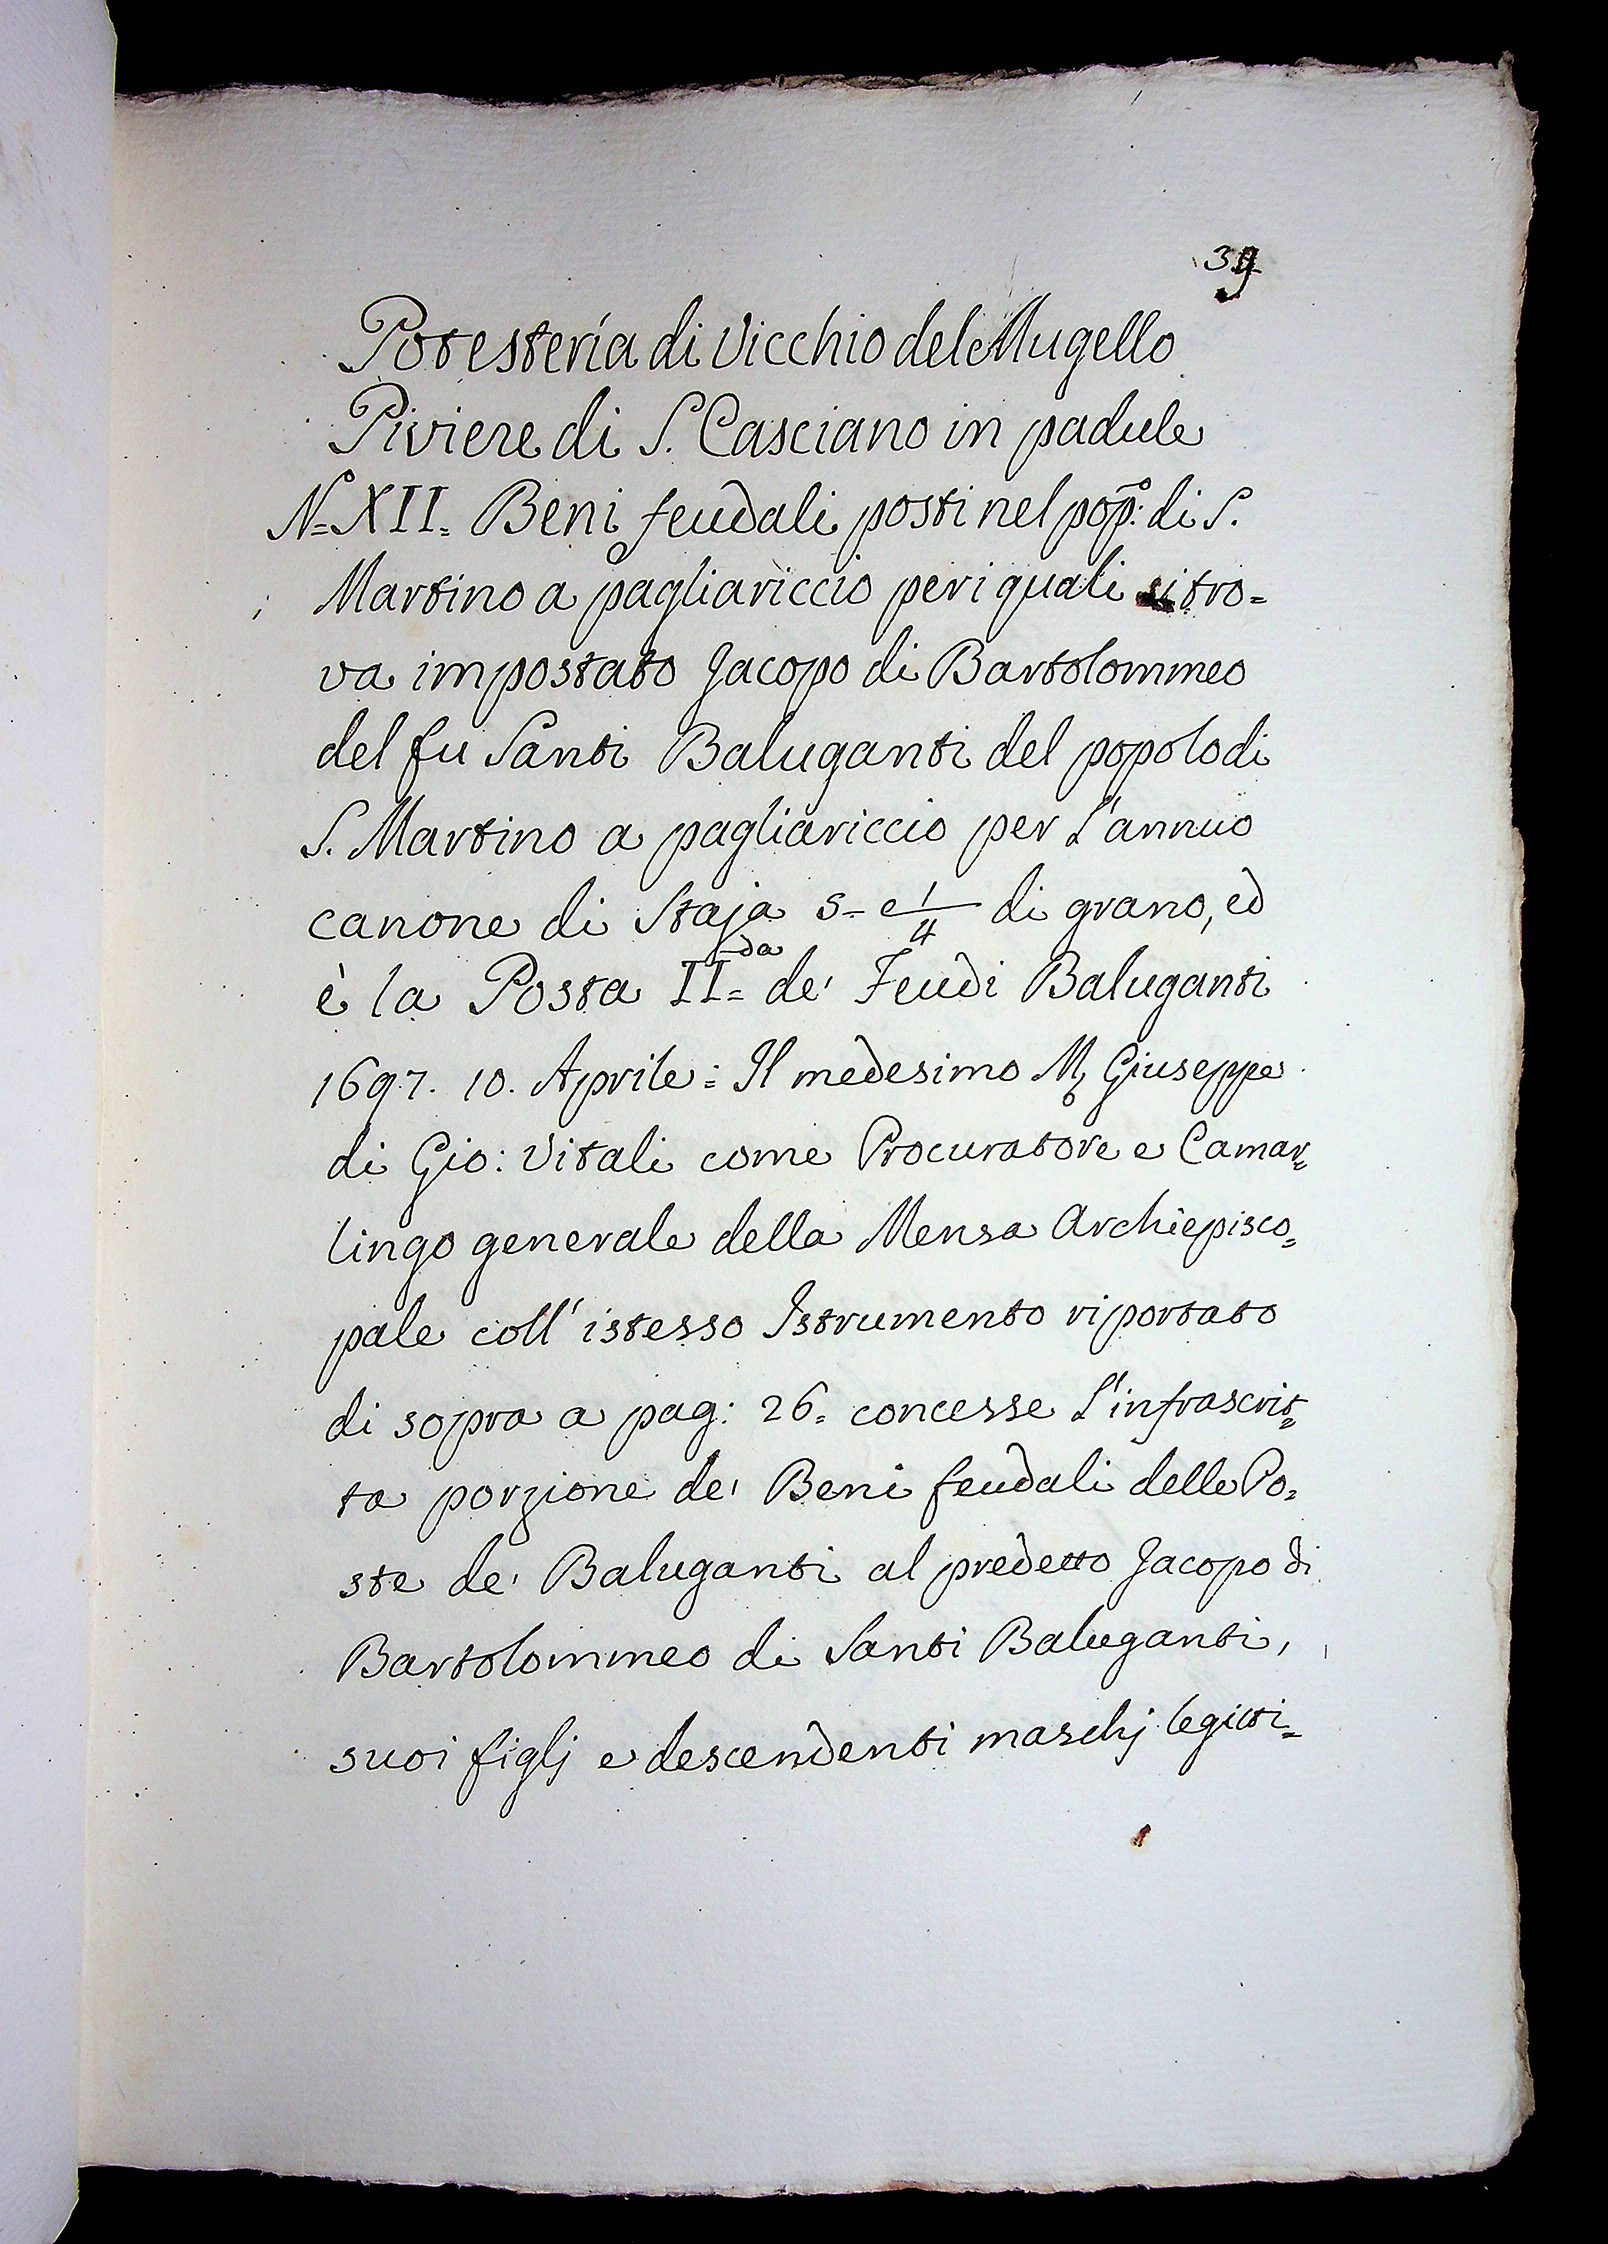 39
Potesteria di Vicchio del Mugello
Piviere di S. Casciano in padule
N= XII= Beni feudali posti nel pop:o di S.
Martino a pagliariccio per i quali si tro=
va impostato Jacopo di Bartolommeo
del fu Santi Baluganti del popolo di
S. Martino a pagliariccio per l'annuo
canone di Staja 5= e 1/4 di grano, ed
è la Posta II=da de' Feudi Baluganti
1697. 10. Aprile= Il medesimo M. Giuseppe
di Gio: Vitali come Procuratore e Camar=
lingo generale della Mensa Archiepisco=
pale coll' istesso Istrumento riportato
di sopra a pag: 26= concesse l'infrascrit=
ta porzione de' Beni feudali delle Po=
ste de' Baluganti al predetto Jacopo di
Bartolommeo di Santi Baluganti,
suoi figlj e descendenti maschj legitti=